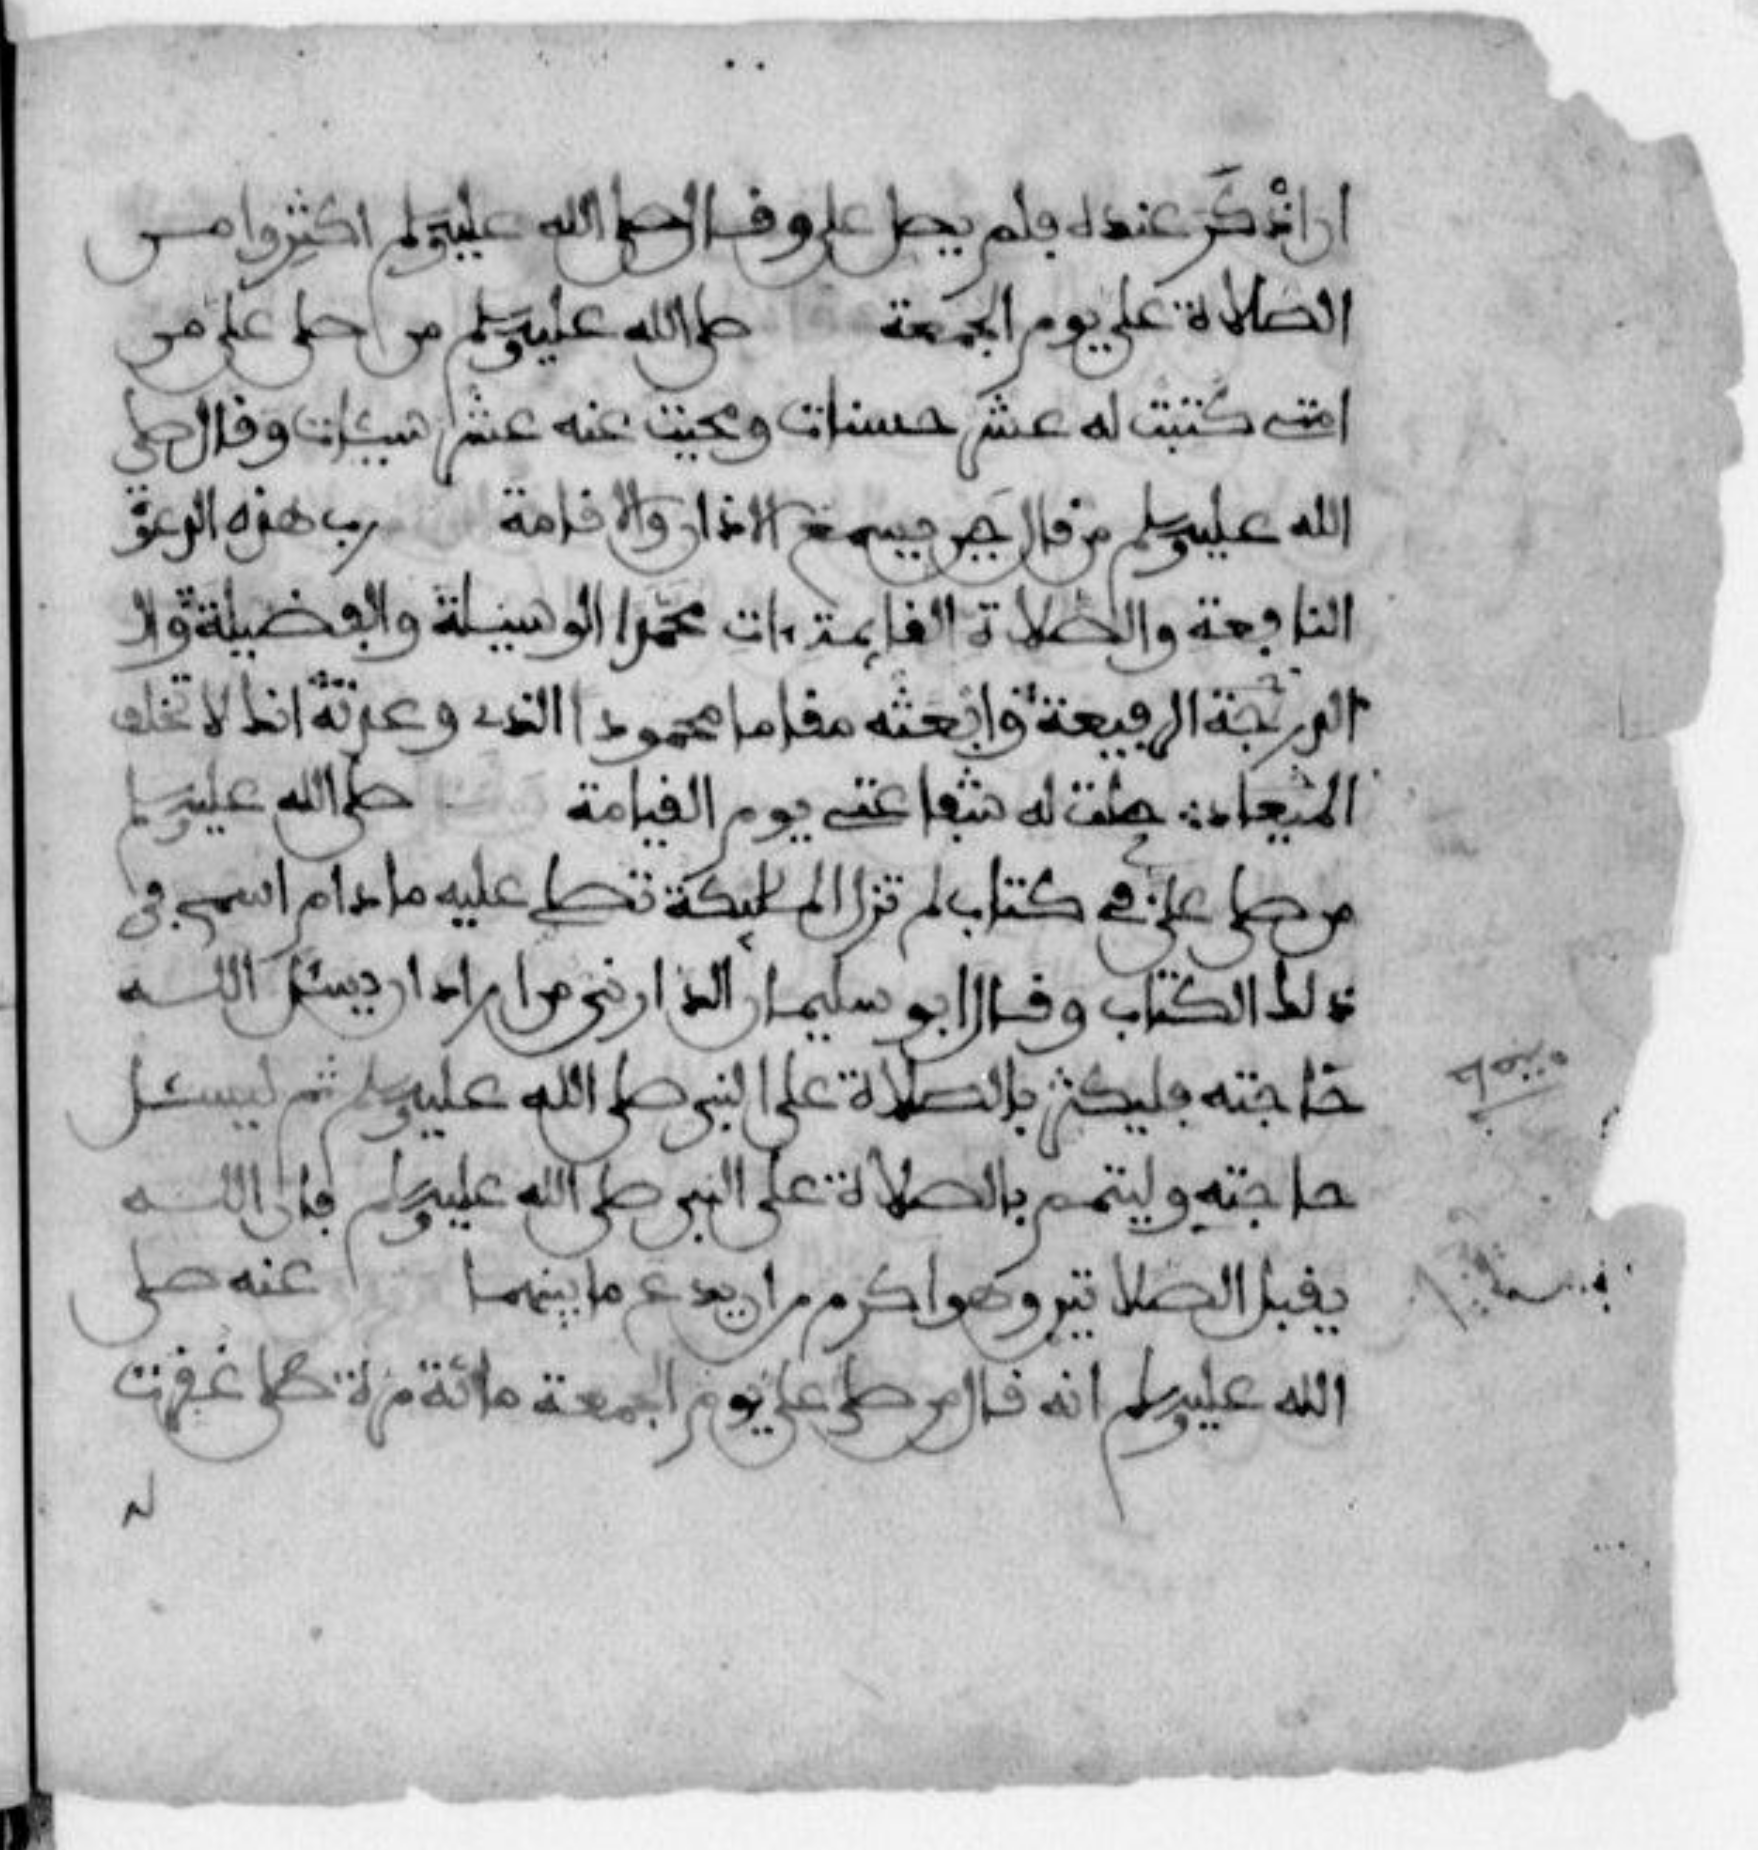 ان اذكر عنده فلم يصل علي وقال صلى الله عليه وسلم اكثروا من
الصلاة علي يوم الجمعة صلى الله عليه وسلم من صلى علي من
امتى كتبت له عشر حسنات ومحيت عنه عشر سيئات وقال صلى
الله عليه وسلم من قال حين يسمع الاذان والاقامة رب هذه الدعوة
النافعة والصلاة القايمة ءات محمدا الوسيلة والفضيلة وال
الدرجة الرفيعة وابعثه مقاما محمودا الذي وعدته انك لا تخلف
الميعاد حلت له شفاعتى يوم القيامة صلى الله عليه وسلم
من صلى علي في كتاب لم تزل المليكة تصلي عليه ما دام اسمى في
ذلك الكتاب وقال ابو سليمان الدارني من اراد ان يسئل الله
حاجته فليكثر بالصلاة على النبي صلى الله عليه وسلم ثم ليسئل
حاجته وليتمم بالصلاة على النبي صلى الله عليه وسلم فان الله
يقبل الصلاتين وهو اكرم من ان يدع ما بينهما عنه صلى
الله عليه وسلم انه قال من صلى علي يوم الجمعة مائة مرة غفرت